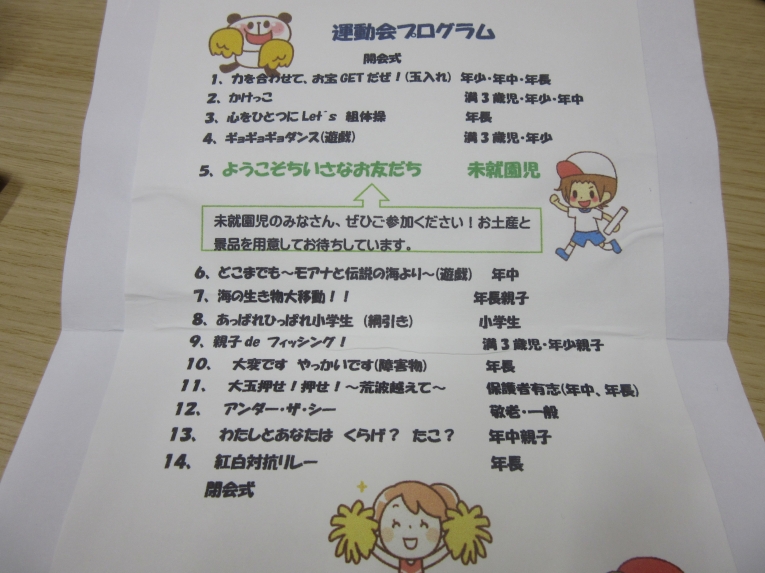 運動会プログラム
開会式
1、力を合わせて、お宝GETだぜ!(玉入れ) 年少・年中・年長
2、かけっこ 満3歳児・年少・年中
3、心をひとつにLet´s 組体操 年長
4、ギョギョギョダンス(遊戯) 満3歳児・年少
5、ようこそちいさなお友だち 未就園児
未就園児のみなさん、ぜひご参加ください!お土産と
景品を用意してお待ちしています。
6、どこまでも~モアナと伝説の海より~(遊戯) 年中
7、海の生き物大移動!! 年長親子
8、あっぱれひっぱれ小学生 (綱引き) 小学生
9、親子de フィッシング! 満3歳児・年少親子
10、 大変です やっかいです(障害物) 年長
11、 大玉押せ!押せ!~荒波越えて~ 保護者有志(年中、年長)
12、 アンダー・ザ・シー 敬老・一般
13、 わたしとあなたは くらげ? たこ? 年中親子
14、 紅白対抗リレー 年長
閉会式